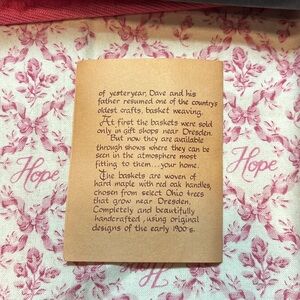 of yesteryear, Dave and his
father resumed one of the country's
oldest crafts, basket weaving.
At first the baskets were sold
only in gift shops near Dresden.
But now they are available
through shows where they can be
seen in the atmosphere most
fitting to them....your home.
The baskets are woven of
hard maple with red oak handles,
chosen from select Ohio trees
that grow near Dresden.
Completely and beautifully
handcrafted, using original
designs of the early 1900's.
Hope
Hope
Hope
Hope